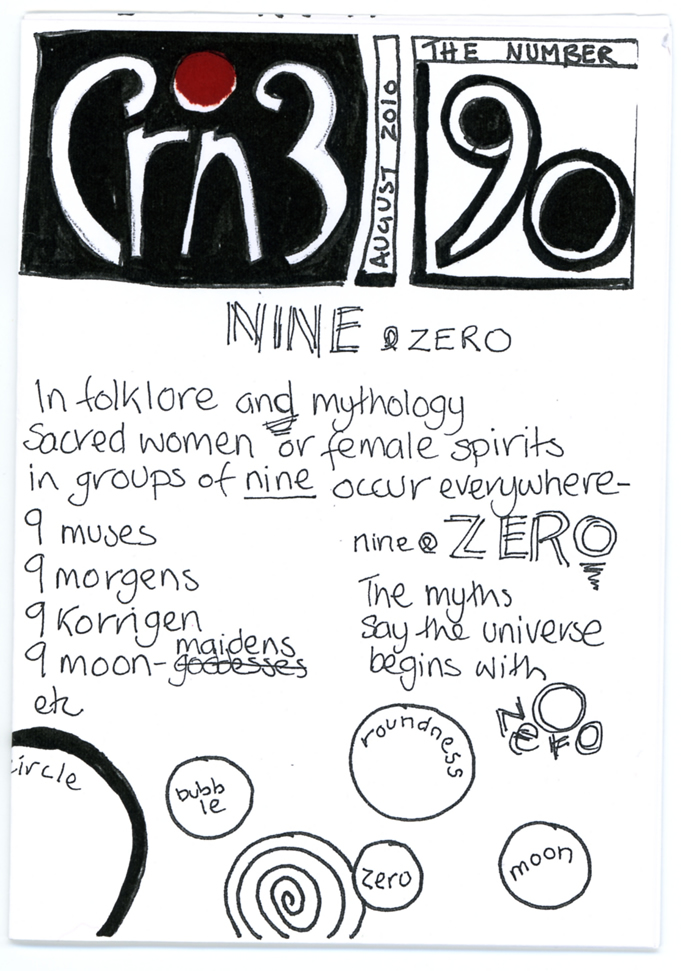 Crn3
AUGUST 2010
THE NUMBER
90
NINE & ZERO
In folklore and mythology
Sacred women or female spirits
in groups of nine occur everywhere-
9 muses
9 morgens
9 Korrigen
9 moon-maidens
goddesses
etc
nine & ZERO
The myths
say the universe
begins with
ZERO
circle
bubb
le
roundness
zero
moon